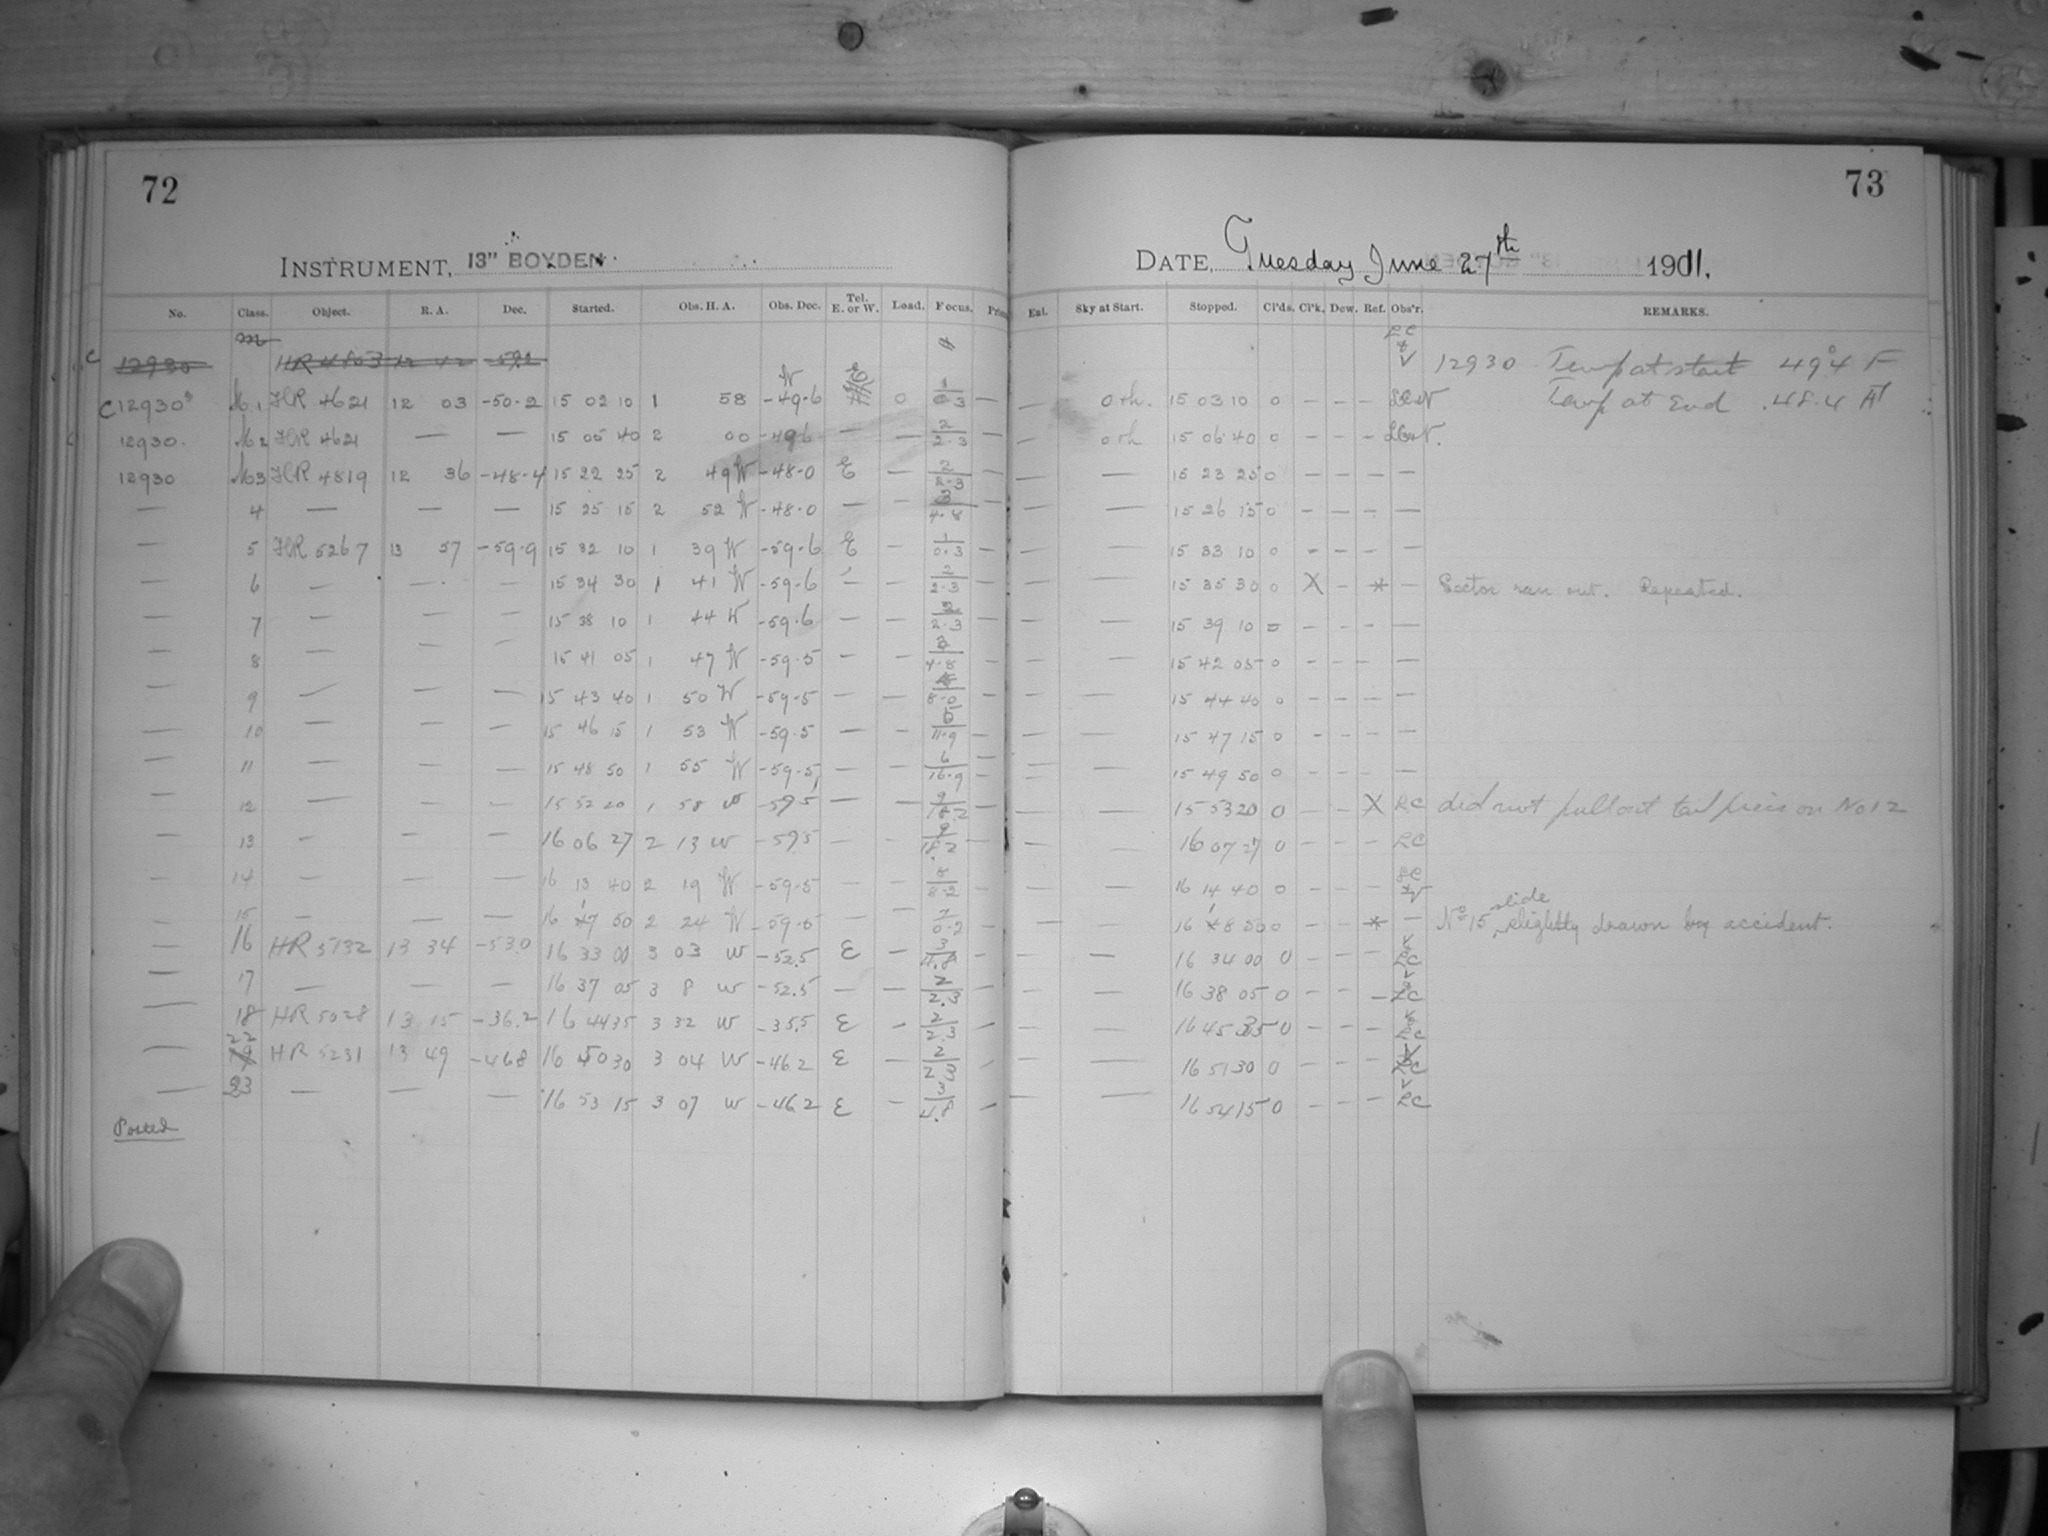 72
INSTRUMENT, 13" BOYDEN
No. Class. Object. R. A. Dec. Started. Obs. H. A. Obs. Dec. Tel. E. or W. Load. Focus.
12930 HR 4803 12 42 -59.2
C 12930 M1 HR 4621 12 03 -50.2 15 02 10 1 58 W -49.6 E 0 1/0.3 —
12930 M2 HR 4621 — — 15 05 40 2 00 -49.6 — — 2/2.3 —
12930 M3 HR 4819 12 36 -48.4 15 22 25 2 49 W -48.0 E — 2/2.3 —
— 4 — — — 15 25 15 2 52 W -48.0 — — 3/4.8 —
— 5 HR 5267 13 57 -59.9 15 32 10 1 39 W -59.6 E — 1/0.3 —
— 6 — — — 15 34 30 1 41 W -59.6 — — 2/2.3 —
— 7 — — — 15 38 10 1 44 W -59.6 — — 2/2.3 —
— 8 — — — 15 41 05 1 47 W -59.5 — — 3/4.8 —
— 9 — — — 15 43 40 1 50 W -59.5 — — 8.0 —
— 10 — — — 15 46 15 1 53 W -59.5 — — 5/11.9 —
— 11 — — — 15 48 50 1 55 W -59.5 — — 6/16.9 —
— 12 — — — 15 52 20 1 58 W -59.5 — — 9/18.2 —
— 13 — — — 16 06 27 2 13 W -59.5 — — 9/18.2 —
— 14 — — — 16 13 40 2 19 W -59.5 — — 8/8.2 —
— 15 — — — 16 17 50 2 24 W -59.5 — — 7/0.2 —
— 16 HR 5132 13 34 -53.0 16 33 00 3 03 W -52.5 E — 3/4.8 —
— 17 — — — 16 37 05 3 8 W -52.5 — — 2/2.3 —
— 18 HR 5028 13 15 -36.2 16 44 35 3 32 W -35.5 E — 2/2.3 —
— 22 HR 5231 13 49 -46.8 16 50 30 3 04 W -46.2 E — 2/2.3 —
— 23 — — — 16 53 15 3 07 W -46.2 E — 3/4.8 —
Posted
73
DATE, Tuesday June 27th 1911.
Ext. Sky at Start. Stopped. Cl'ds. Cl'k. Dew. Ref. Obs'r. REMARKS.
LC & V 12930 Temp at start 49°4 F
— 0 th. 15 03 10 0 — — — Temp at End 48.4 AT
— 0 th 15 06 40 0 — — —
— — 15 23 25 0 — — — —
— — 15 26 15 0 — — — —
— — 15 33 10 0 — — — —
— — 15 35 30 0 X — * — Sector ran out. Repeated.
— — 15 39 10 0 — — — —
— — 15 42 05 0 — — — —
— — 15 44 40 0 — — — —
— — 15 47 15 0 — — — —
— — 15 49 50 0 — — — —
— — 15 53 20 0 — — X LC did not pull out tail piece on No 12
— — 16 07 27 0 — — — LC
— — 16 14 40 0 — — — LC & V
— — 16 18 50 0 — — * — No 15 slide slightly drawn by accident.
— — 16 34 00 0 — — — V LC
— — 16 38 05 0 — — — V & LC
— — 16 45 35 0 — — — V & LC
— — 16 51 30 0 — — — V & LC
— — 16 54 15 0 — — — V LC